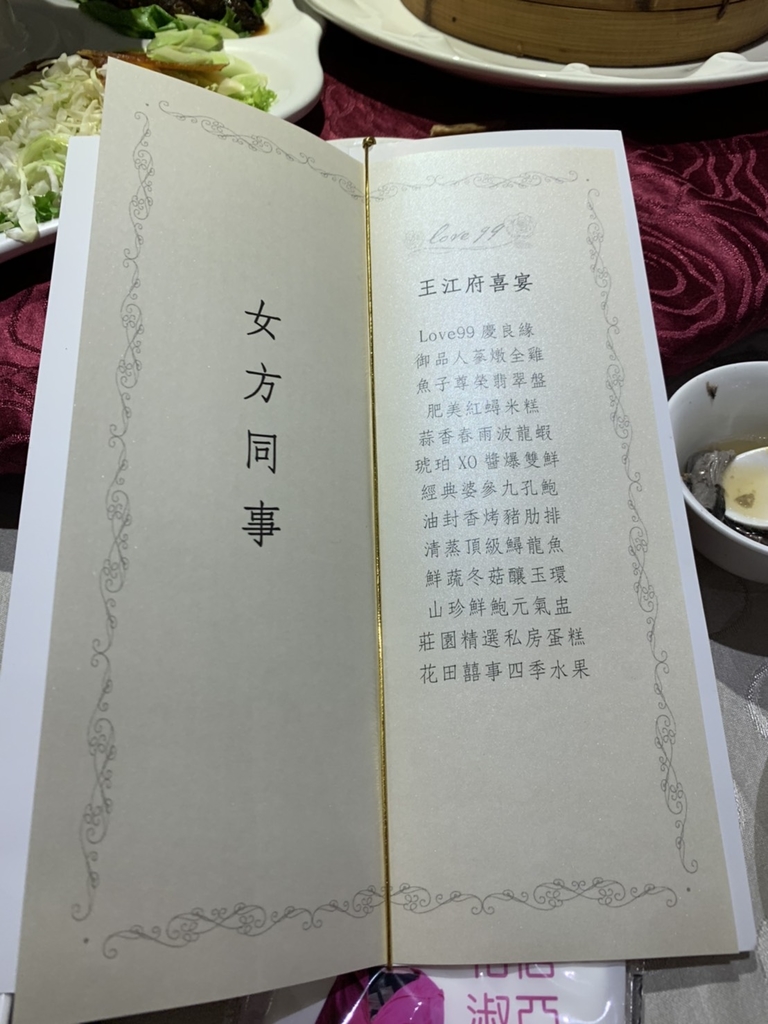 女方同事
love 99
王江府喜宴
Love99 慶良緣
御品人蔘燉全雞
魚子尊榮翡翠盤
肥美紅蟳米糕
蒜香春雨波龍蝦
琥珀 XO 醬爆雙鮮
經典婆參九孔鮑
油封香烤豬肋排
清蒸頂級鱘龍魚
鮮蔬冬菇釀玉環
山珍鮮鮑元氣盅
莊園精選私房蛋糕
花田囍事四季水果